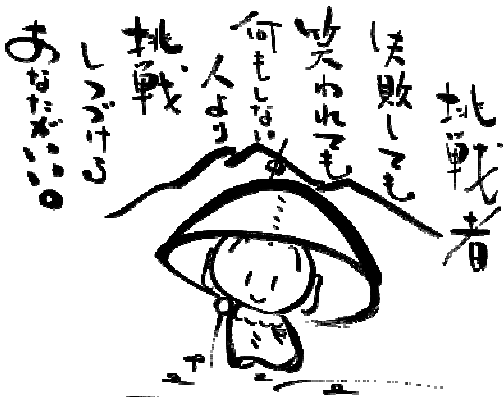 挑戦者
失敗しても
笑われても
何もしない
人より
挑戦
しつづける
あなたがいい。